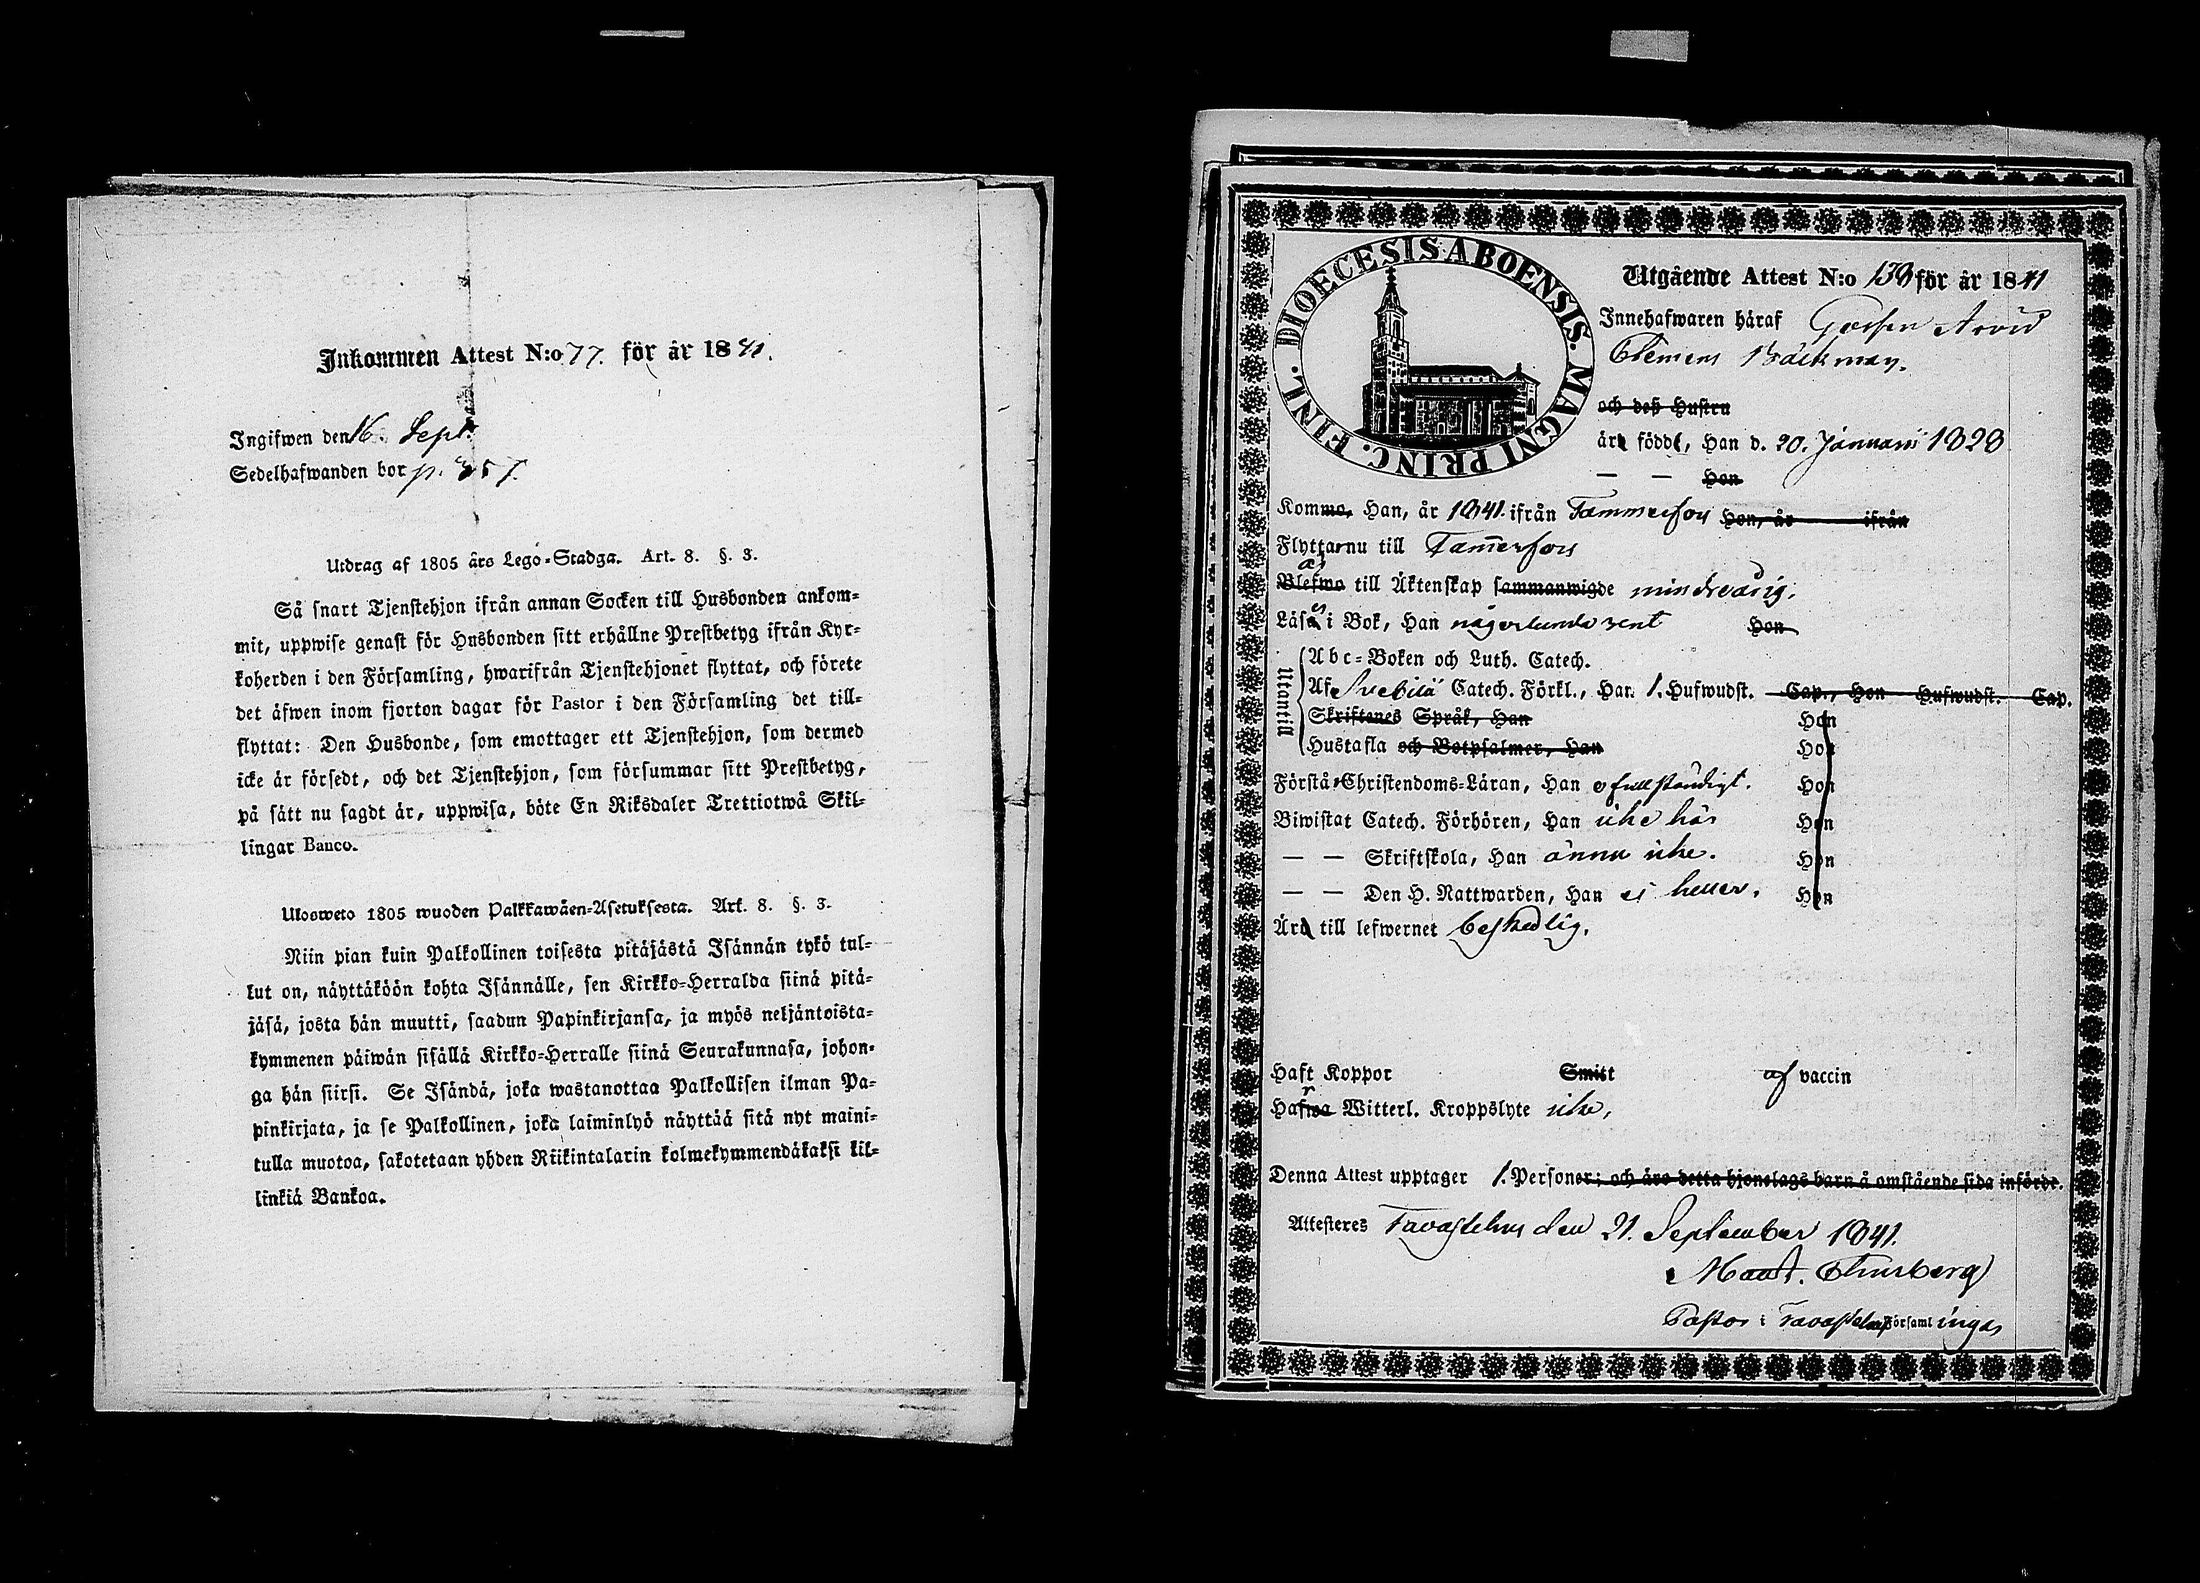 Inkommen Attest N:o 77. för år 1841.
Ingifwen den 16. Sept.
Sedelhafwanden bor p. 357.
Utdrag af 1805 års Lego-Stadga. Art. 8. §. 3.
Så snart Tjenstehjon ifrån annan Socken till Husbonden ankom-
mit, uppwise genast för Husbonden sitt erhållne Prestbetyg ifrån Kyr-
koherden i den Församling, hwarifrån Tjenstehjonet flyttat, och förete
det äfwen inom fjorton dagar för Pastor i den Församling det till-
flyttat: Den Husbonde, som emottager ett Tjenstehjon, som dermed
icke är försedt, och det Tjenstehjon, som försummar sitt Prestbetyg,
på sätt nu sagdt är, uppwisa, böte En Riksdaler Trettiotwå Skil-
lingar Banco.
Ulosweto 1805 wuoden Palkkawäen-Asetuksesta. Art. 8. §. 3.
Niin pian kuin Palkollinen toisesta pitäjästä Isännän tykö tul-
lut on, näyttäköön kohta Isännälle, sen Kirkko-Herralda siinä pitä-
jäsä, josta hän muutti, saadun Papinkirjansa, ja myös neljäntoista-
kymmenen päiwän sisällä Kirkko-Herralle siinä Seurakunnasa, johon-
ga hän siirsi. Se Isändä, joka wastanottaa Palkollisen ilman Pa-
pinkirjata, ja se Palkollinen, joka laiminlyö näyttää sitä nyt maini-
tulla muotoa, sakotetaan yhden Riikintalarin kolmekymmendäkaksi kil-
linkiä Bankoa.
DIOECESIS ABOENSIS. MAGNI PRINC. FINL.
Utgående Attest N:o 130 för år 1841
Innehafwaren häraf Gossen Arvid
Clemens Bäckman.
och deß Hustru
äro född, Han d. 20. Januarii 1828
— — Hon
Kommo, Han, år 1841. ifrån Tammerfors Hon, år ifrån
Flyttar nu till Tamerfors
Blefwo till Äktenskap sammanwigde minderårig.
Läser i Bok, Han någorlunda rent Hon
Utantill
Abc-Boken och Luth. Catech.
Af Svebilii Catech. Förkl., Han 1. Hufwudst. Cap., Hon Hufwudst. Cap.
Skriftenes Språk, Han Hon
Hustafla och Botpsalmer, Han Hon
Förstår Christendoms-Läran, Han ofullständigt. Hon
Biwistat Catech. Förhören, Han icke här Hon
— — Skriftskola, Han ännu icke. Hon
— — Den H. Nattwarden, Han ej heller. Hon
Äro till lefwernet beskedlig.
Haft Koppor Smitt af vaccin
Hafwa Witterl. Kroppslyte icke,
Denna Attest upptager 1. Personer; och äro detta hjonelags barn å omstående sida införde.
Attesteres Tavastehus den 21. September 1841.
Pastor i Tavastehus Församlingar